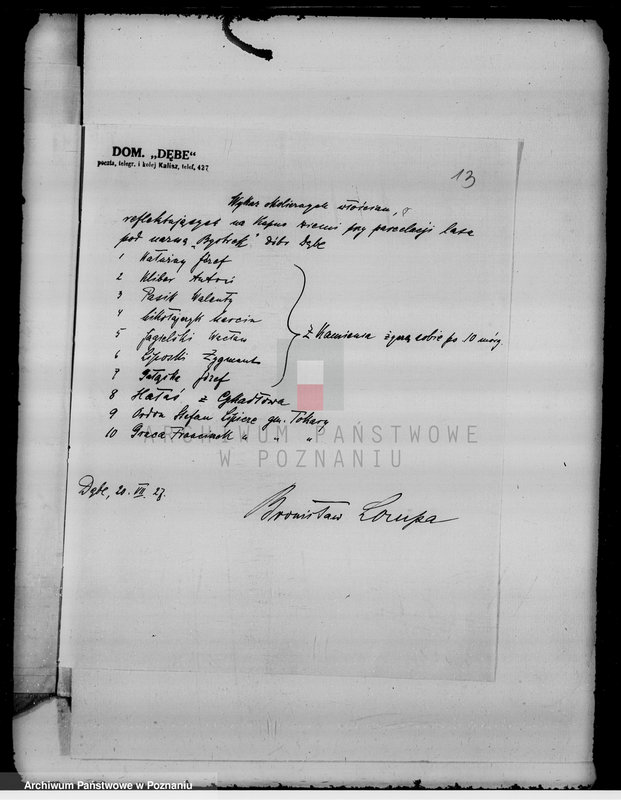 DOM. „DĘBE“
poczta, telegr. i kolej Kalisz, telef. 427
13
Wykaz okolicznych włościan,
reflektujących na kupno ziemi przy parcelacji lasu
pod nazwą „Bystrek“ dóbr Dębe
1 Józef
2 Klibor Antoni
3 Pasik Walenty
4 Mikołajczyk Marcin
5 Jagielski Wacław
6 Liposki Zygmunt
7 Józef
z Kamienia życzą sobie po 10 mórg
8 Hałaś z
9 Ordon Stefan Lipicze gm. Tokary
10 Graca Franciszek „ „ „
ARCHIWUM PAŃSTWOWE
W POZNANIU
Dębe, 20. VII. 27.
Bronisław
Archiwum Państwowe w Poznaniu